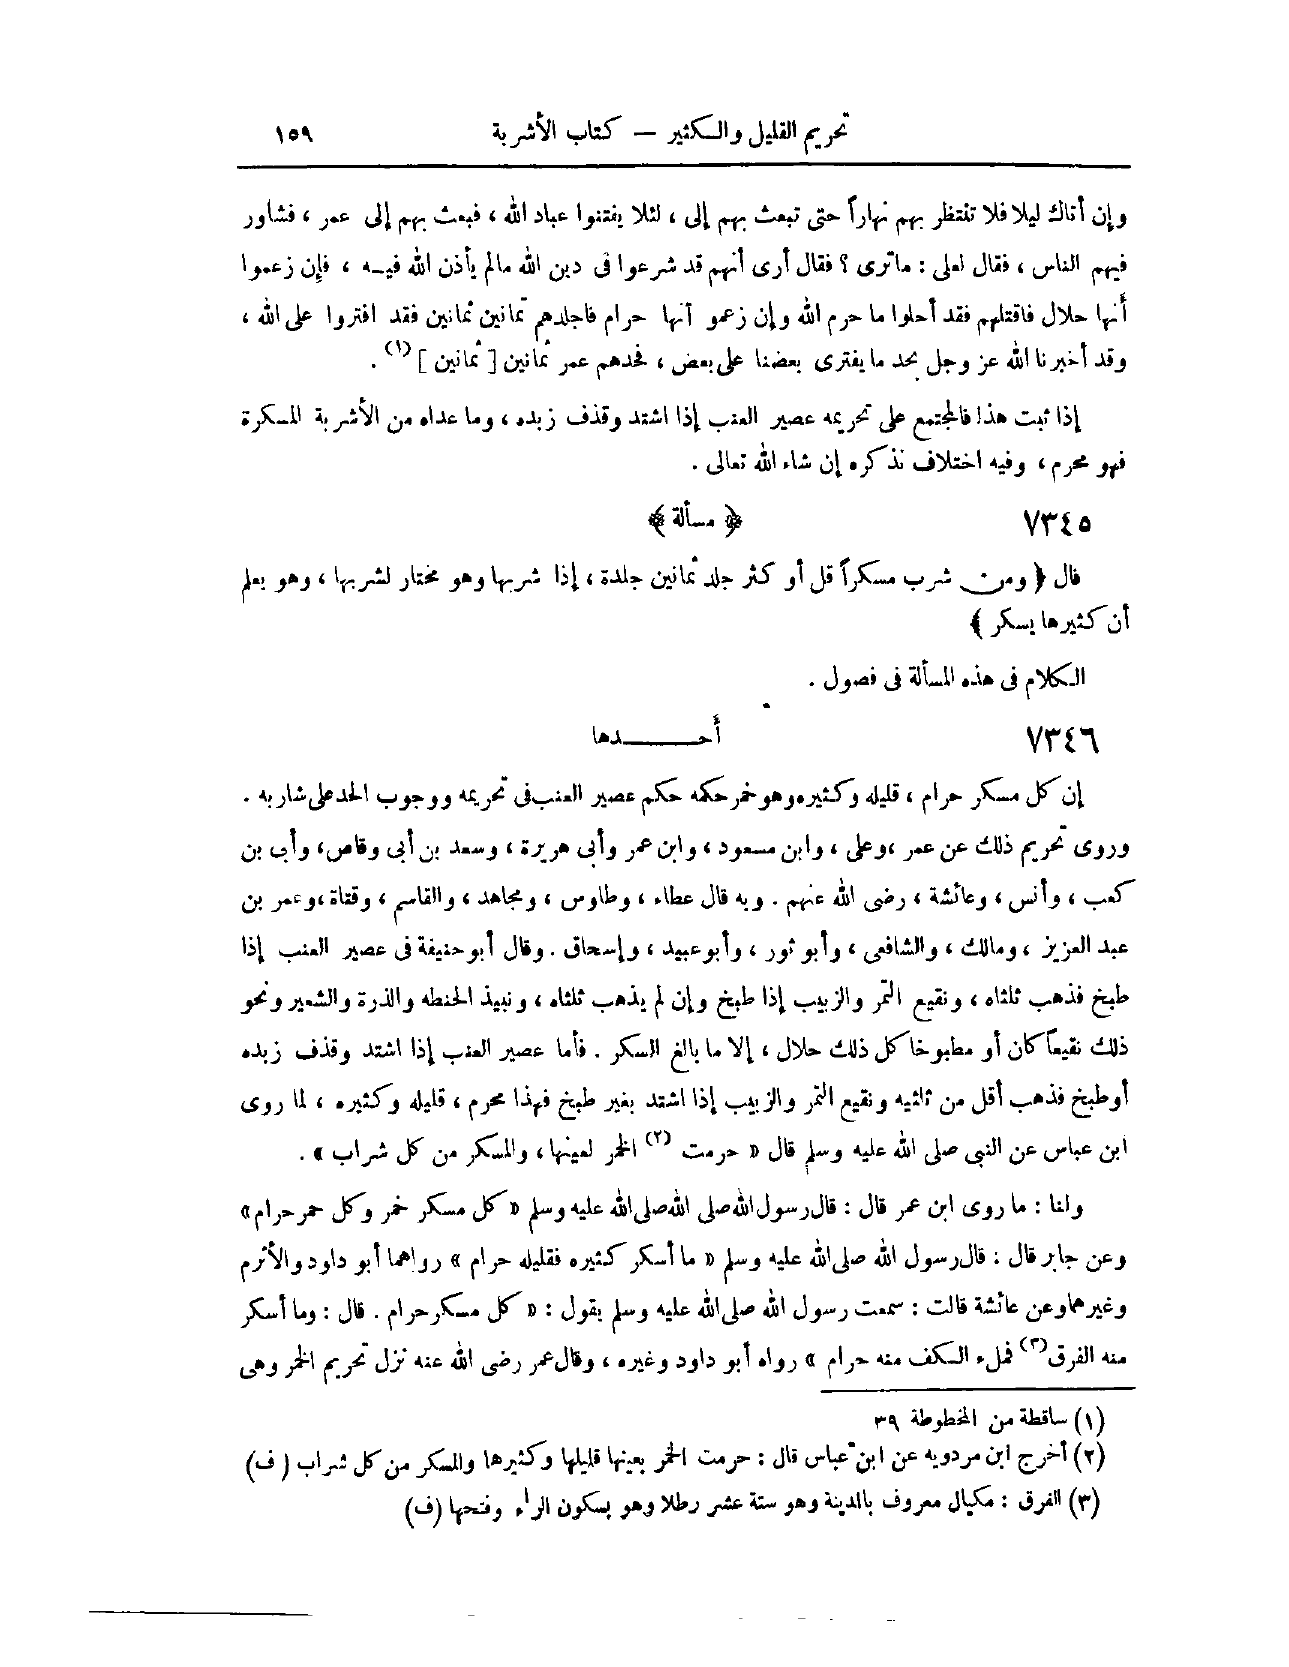 تحريم القليل والكثير — كتاب الأشربة ١٥٩
وإن أتاك ليلا فلا تنتظر بهم نهاراً حتى تبعث بهم إلى ، لئلا يفتنوا عباد الله ، فبعث بهم إلى عمر ، فشاور
فيهم الناس ، فقال لعلى : ماترى ؟ فقال أرى أنهم قد شرعوا فى دين الله مالم يأذن الله فيه ، فإن زعموا
أنها حلال فاقتلهم فقد أحلوا ما حرم الله وإن زعمو أنها حرام فاجلدهم ثمانين ثمانين فقد افتروا على الله ،
وقد أخبرنا الله عز وجل بحد ما يفترى بعضنا على بعض ، فحدهم عمر ثمانين [ ثمانين ] (١) .
إذا ثبت هذا فالمجتمع على تحريمه عصير العنب إذا اشتد وقذف زبده ، وما عداه من الأشربة المسكرة
فهو محرم ، وفيه اختلاف نذكره إن شاء الله تعالى .
٧٣٤٥ ﴿ مسألة ﴾
قال ﴿ ومن شرب مسكراً قل أو كثر جلد ثمانين جلدة ، إذا شربها وهو مختار لشربها ، وهو يعلم
أن كثيرها يسكر ﴾
الكلام فى هذه المسألة فى فصول .
٧٣٤٦ أحدها
إن كل مسكر حرام ، قليله وكثيره وهو خمر حكمه حكم عصير العنب فى تحريمه ووجوب الحد على شاربه .
وروى تحريم ذلك عن عمر ، وعلى ، وابن مسعود ، وابن عمر وأبى هريرة ، وسعد بن أبى وقاص ، وأبى بن
كعب ، وأنس ، وعائشة ، رضى الله عنهم . وبه قال عطاء ، وطاوس ، ومجاهد ، والقاسم ، وقتاة ، وعمر بن
عبد العزيز ، ومالك ، والشافعى ، وأبو ثور ، وأبو عبيد ، وإسحاق . وقال أبو حنيفة فى عصير العنب إذا
طبخ فذهب ثلثاه ، ونقيع التمر والزبيب إذا طبخ وإن لم يذهب ثلثاه ، ونبيذ الحنطه والذرة والشعير ونحو
ذلك نقيعاً كان أو مطبوخا كل ذلك حلال ، إلا ما بالغ السكر . فأما عصير العنب إذا اشتد وقذف زبده
أو طبخ فذهب أقل من ثاثيه ونقيع التمر والزبيب إذا اشتد بغير طبخ فهذا محرم ، قليله وكثيره ، لما روى
ابن عباس عن النبى صلى الله عليه وسلم قال « حرمت (٢) الخمر لعينها ، والمسكر من كل شراب » .
ولنا : ما روى ابن عمر قال : قال رسول الله صلى الله صلى الله عليه وسلم « كل مسكر خمر وكل حمر حرام »
وعن جابر قال : قال رسول الله صلى الله عليه وسلم « ما أسكر كثيره فقليله حرام » رواهما أبو داود والأثرم
وغيرهما وعن عائشة قالت : سمعت رسول الله صلى الله عليه وسلم يقول : « كل مسكر حرام . قال : وما أسكر
منه الفرق (٣) فملء الكف منه حرام » رواه أبو داود وغيره ، وقال عمر رضى الله عنه نزل تحريم الخمر وهى
(١) ساقطة من المخطوطة ٣٩
(٢) أخرج ابن مردويه عن ابن عباس قال : حرمت الخمر بعينها قليلها وكثيرها والمسكر من كل شراب ( ف )
(٣) الفرق : مكيال معروف بالمدينة وهو ستة عشر رطلا وهو بسكون الراء وفتحها ( ف )